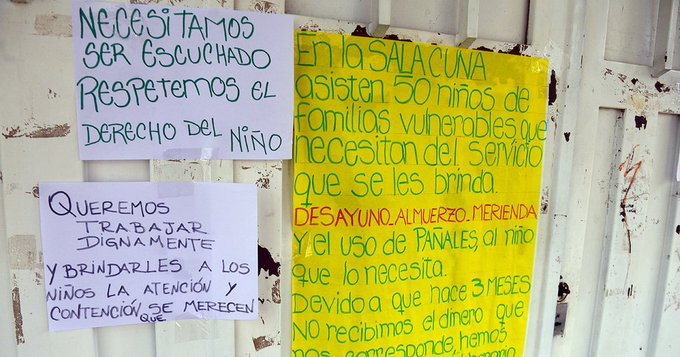 NECESITAMOS
SER ESCUCHADO
RESPETEMOS EL
DERECHO DEL NIÑO
QUEREMOS
TRABAJAR
DIGNAMENTE
Y BRINDARLES A LOS
NIÑOS LA ATENCIÓN Y
CONTENCIÓN SE MERECEN
QUE
En la SALA CUNA
asisten 50 niños de
familias vulnerables que
necesitan del servicio
que se les brinda.
DESAYUNO_ALMUERZO_MERIENDA
Y el uso de PAÑALES, al niño
que lo necesita.
Devido a que hace 3 MESES
NO recibimos el dinero que
nos corresponde, hemos